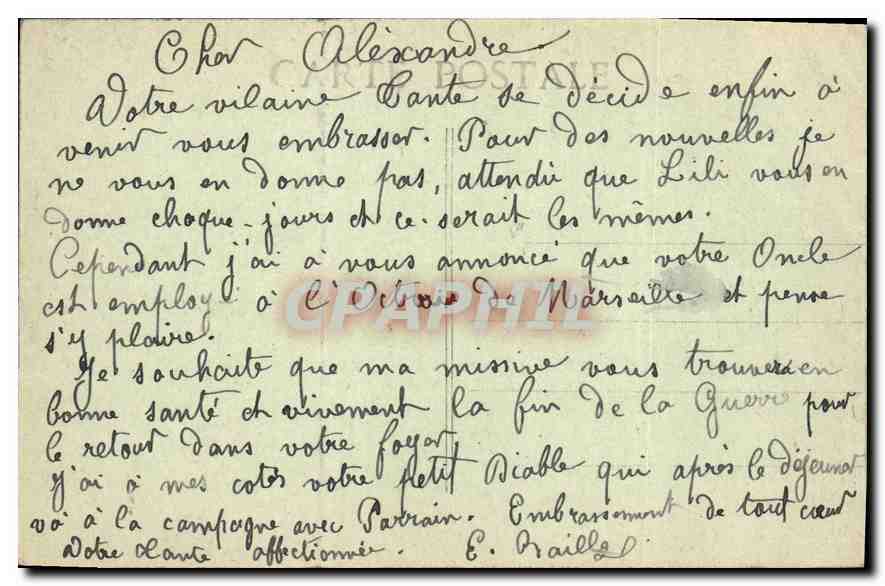 Cher Aléxandre
CARTE POSTALE
Votre vilaine Tante se décide enfin à
venir vous embrasser. Pour des nouvelles je
ne vous en donne pas, attendu que Lili vous en
donne chaque - jours et ce - serait les mêmes.
Cependant j'ai à vous annoncé que votre Oncle
est employé à l'Octroi de Marseille et pense
s'y plaire.
CPAPHIL
Je souhaite que ma missive vous trouvera en
bonne santé et vivement la fin de la Guerre pour
le retour dans votre foyer,
J'ai à mes cotés votre petit Diable qui après le déjeuner
và à la campagne avec Parrain. Embrassement de tout cœur
Votre Tante affectionnée. E.